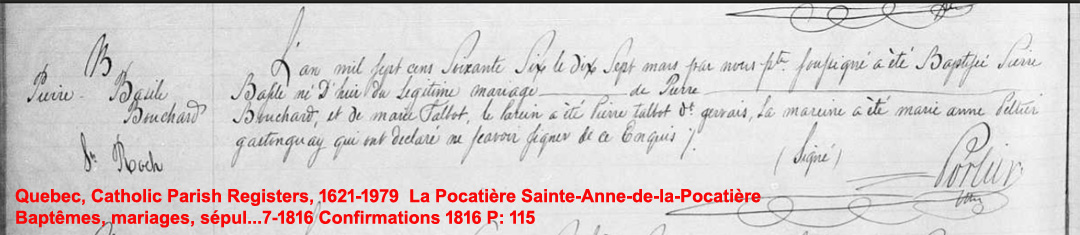 B
Pierre - Basile
Bouchard
St Roch
L'an mil sept cens Soixante Six le dix Sept mars par nous ptre soussigné a été Baptisé Pierre
Basile né D'hier du Legitime mariage de Pierre
Bouchard, et de marie Talbot, le parein a été Pierre talbot dt gervais, La mareine a été marie anne Peltier
gastonguay qui ont declaré ne sçavoir signer de ce Enquis /.
(Signé) Porlier
ptre
Quebec, Catholic Parish Registers, 1621-1979 La Pocatière Sainte-Anne-de-la-Pocatière
Baptêmes, mariages, sépul...7-1816 Confirmations 1816 P: 115